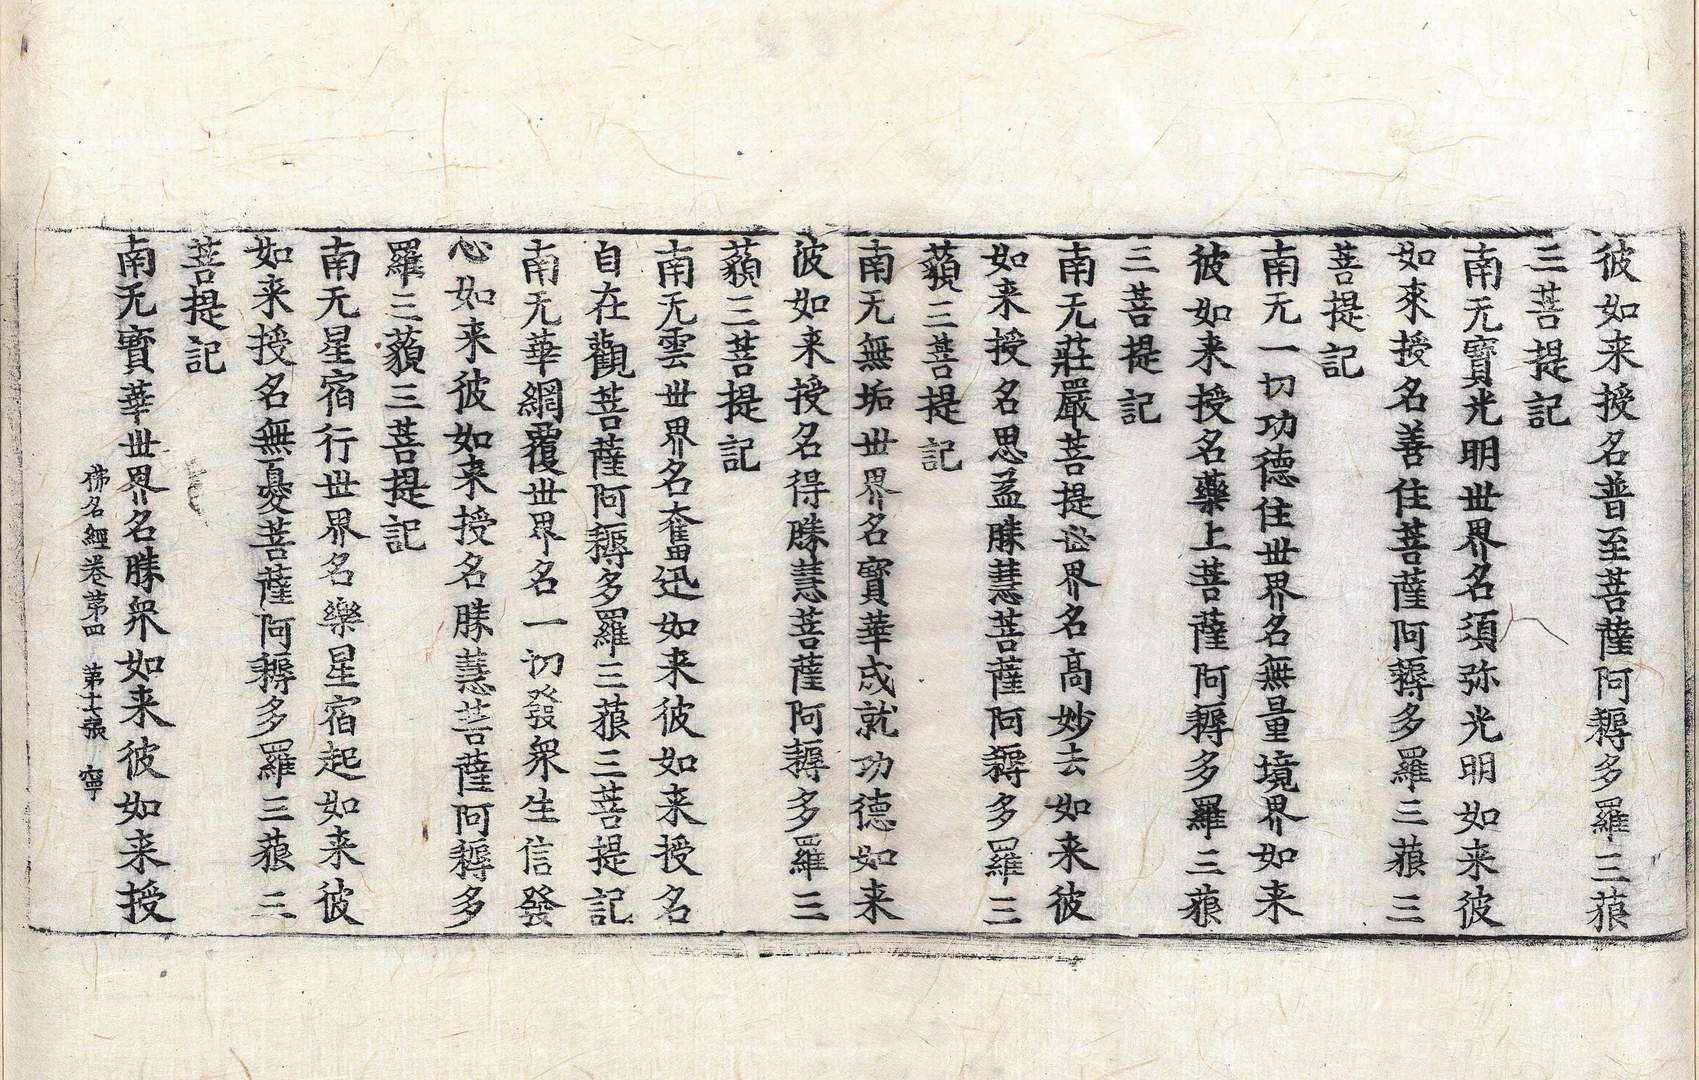 彼如来授名普至菩薩阿耨多羅三藐
三菩提記
南无寶光明世界名須弥光明如来彼
如來授名善住菩薩阿耨多羅三藐三
菩提記
南无一切功德住世界名無量境界如来
彼如来授名藥上菩薩阿耨多羅三藐
三菩提記
南无莊嚴菩提世界名高妙去如来彼
如来授名思益勝慧菩薩阿耨多羅三
藐三菩提記
南无無垢世界名寶華成就功德如来
彼如来授名得勝慧菩薩阿耨多羅三
藐三菩提記
南无雲世界名奮迅如来彼如来授名
自在觀菩薩阿耨多羅三藐三菩提記
南无華網覆世界名一切發衆生信發
心如来彼如来授名勝慧菩薩阿耨多
羅三藐三菩提記
南无星宿行世界名樂星宿起如来彼
如来授名無憂菩薩阿耨多羅三藐三
菩提記
南无寶華世界名勝衆如来彼如来授
佛名經卷第四 第十七張 寧